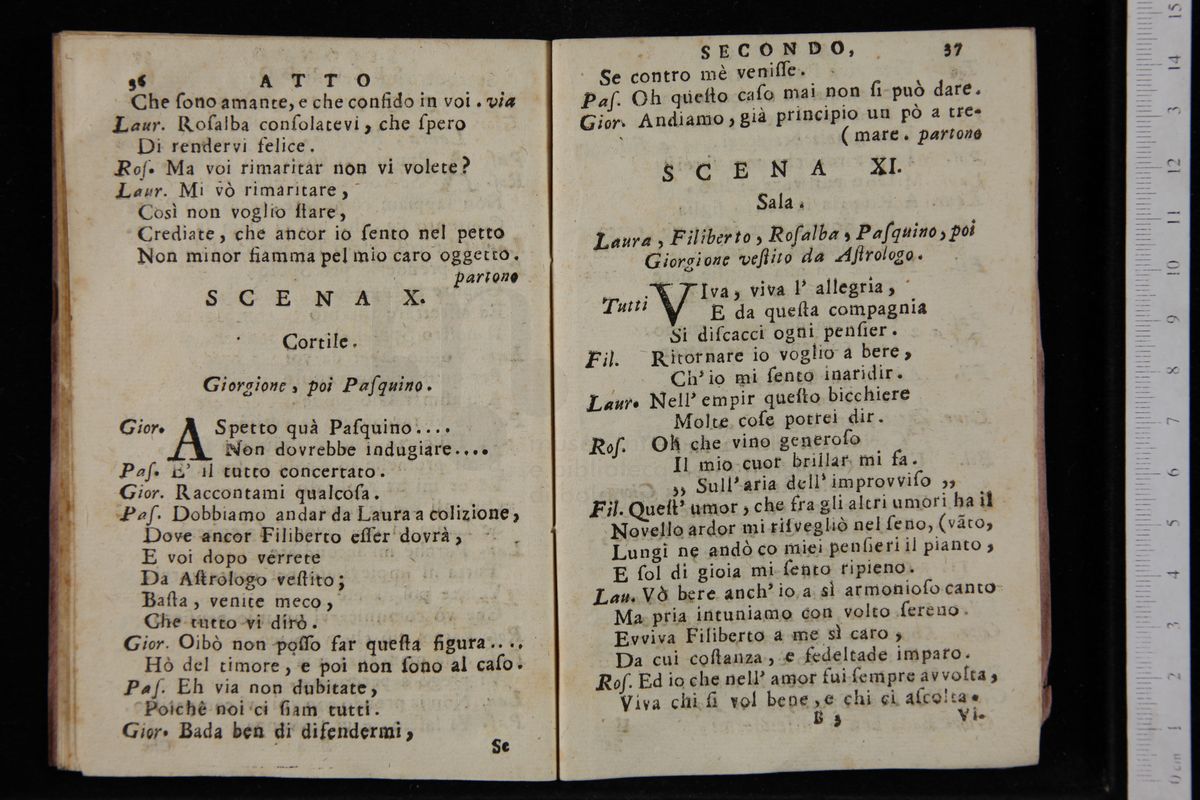 36 ATTO
Che ſono amante, e che confido in voi. via
Laur. Roſalba conſolatevi, che ſpero
Di rendervi felice.
Roſ. Ma voi rimaritar non vi volete?
Laur. Mi vò rimaritare,
Così non voglio ſtare,
Crediate, che ancor io ſento nel petto
Non minor fiamma pel mio caro oggetto.
partono
SCENA X.
Cortile.
Giorgione, poi Paſquino.
Gior. ASpetto quà Paſquino....
Non dovrebbe indugiare....
Paſ. E' il tutto concertato.
Gior. Raccontami qualcoſa.
Paſ. Dobbiamo andar da Laura a colizione,
Dove ancor Filiberto eſſer dovrà,
E voi dopo verrete
Da Aſtrologo veſtito;
Baſta, venite meco,
Che tutto vi dirò.
Gior. Oibò non poſſo far queſta figura....
Hò del timore, e poi non ſono al caſo.
Paſ. Eh via non dubitate,
Poichè noi ci ſiam tutti.
Gior. Bada ben di difendermi,
Se
SECONDO, 37
Se contro mè veniſſe.
Paſ. Oh queſto caſo mai non ſi può dare.
Gior. Andiamo, già principio un pò a tre-
(mare. partono
SCENA XI.
Sala.
Laura, Filiberto, Roſalba, Paſquino, poi
Giorgione veſtito da Aſtrologo.
Tutti VIva, viva l' allegria,
E da queſta compagnia
Si diſcacci ogni penſier.
Fil. Ritornare io voglio a bere,
Ch' io mi ſento inaridir.
Laur. Nell' empir queſto bicchiere
Molte coſe potrei dir.
Roſ. Oh che vino generoſo
Il mio cuor brillar mi fa.
,, Sull' aria dell' improvviſo ,,
Fil. Queſt' umor, che fra gli altri umori ha il
Novello ardor mi riſvegliò nel ſeno, (vãto,
Lungi ne andò co miei penſieri il pianto,
E ſol di gioia mi ſento ripieno.
Lau. Vò bere anch' io a sì armonioſo canto
Ma pria intuniamo con volto ſereno.
Evviva Filiberto a me sì caro,
Da cui coſtanza, e fedeltade imparo.
Roſ. Ed io che nell' amor fui ſempre avvolta,
Viva chi ſi vol bene, e chi ci aſcolta.
B 3 Vi-